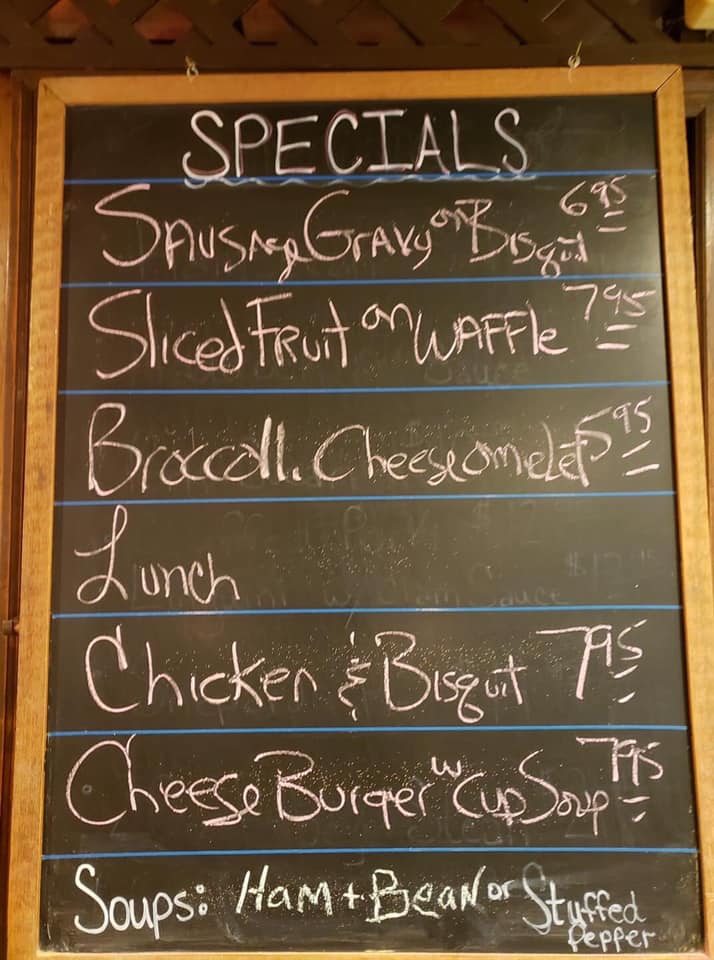 SPECIALS
Sausage Gravy on Bisquit 6 95
Sliced Fruit on WAFFle 7 95
Broccoll. Cheese omelet 5 95
Lunch
Chicken & Bisquit 7 95
Cheese Burger w Cup Soup 7 95
Soups: HAM + BeaN or Stuffed
Pepper